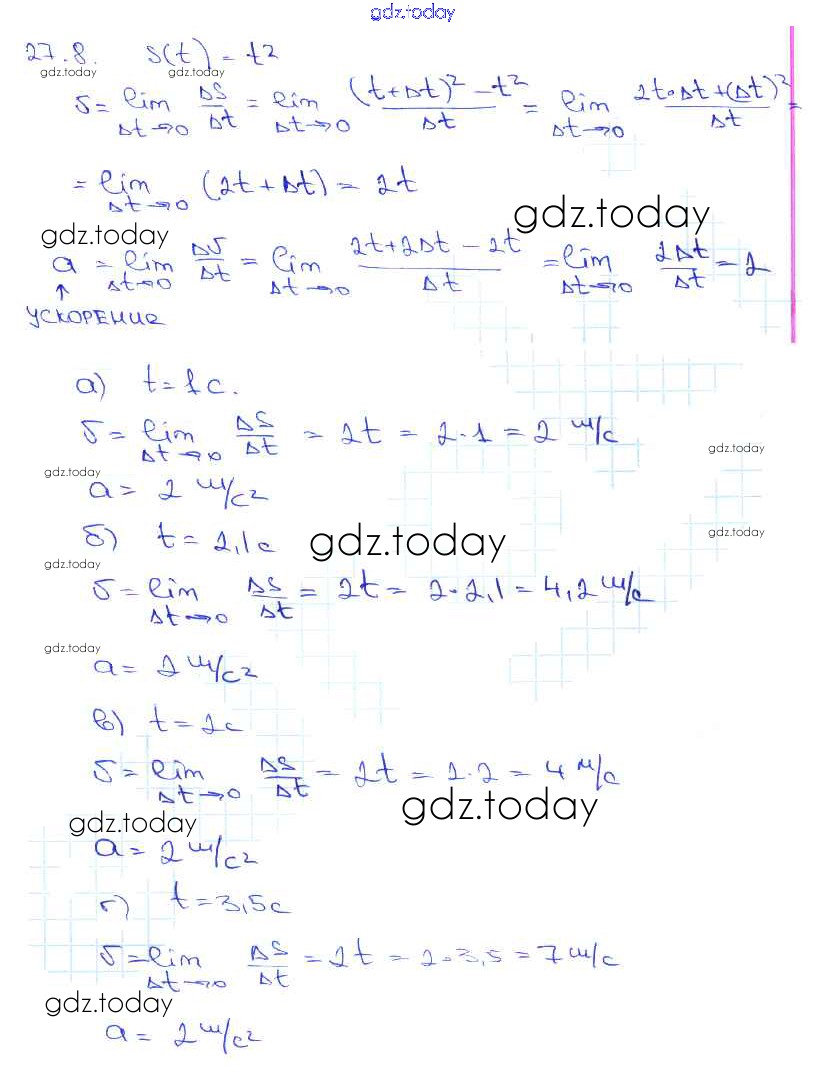 gdz.today
27.8. S(t) = t²
gdz.today gdz.today
υ = lim Δt→0 ΔS/Δt = lim Δt→0 ((t+Δt)² - t²)/Δt = lim Δt→0 (2t·Δt+(Δt)²)/Δt =
= lim Δt→0 (2t + Δt) = 2t
gdz.today
gdz.today
a = lim Δt→0 Δυ/Δt = lim Δt→0 (2t+2Δt - 2t)/Δt = lim Δt→0 2Δt/Δt = 2
↑
УСКОРЕНИЕ
а) t = 1 с.
υ = lim Δt→0 ΔS/Δt = 2t = 2·1 = 2 м/с
gdz.today
gdz.today
a = 2 м/с²
б) t = 2,1 с
gdz.today
gdz.today
gdz.today
υ = lim Δt→0 ΔS/Δt = 2t = 2·2,1 = 4,2 м/с
gdz.today
a = 2 м/с²
в) t = 2с
υ = lim Δt→0 ΔS/Δt = 2t = 2·2 = 4 м/с
gdz.today
gdz.today
a = 2 м/с²
г) t = 3,5с
υ = lim Δt→0 ΔS/Δt = 2t = 2·3,5 = 7 м/с
gdz.today
a = 2 м/с²